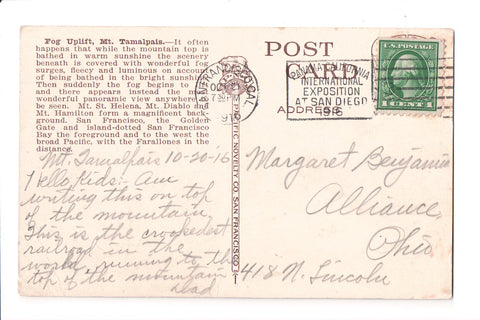 Fog Uplift, Mt. Tamalpais.—It often
happens that while the mountain top is
bathed in warm sunshine the scenery
beneath is covered with wonderful fog
surges, fleecy and luminous on account
of being bathed in the bright sunshine.
Then suddenly the fog begins to
and there appears instead the most
wonderful panoramic view anywhere
be seen. Mt. St. Helena, Mt. Diablo and
Mt. Hamilton form a magnificent back-
ground. San Francisco, the Golden
Gate and island-dotted San Francisco
Bay the foreground and to the west the
broad Pacific, with the Farallones in the
distance.
Mt. Tamalpais 10-20-16
Hello Kids:- Am
writing this on top
of the mountain.
This is the crookedest
railroad in the
world running to the
top of the mountain
Dad
PACIFIC NOVELTY CO. SAN FRANCISCO
POST
CARD
ADDRESS
SAN FRANCISCO, CAL.
OCT
7 30 PM
1916
PANAMA-CALIFORNIA
INTERNATIONAL
EXPOSITION
AT SAN DIEGO
1916
U.S. POSTAGE
1 CENT 1
Margaret Benjamin
Alliance,
Ohio,
418 N. Lincoln